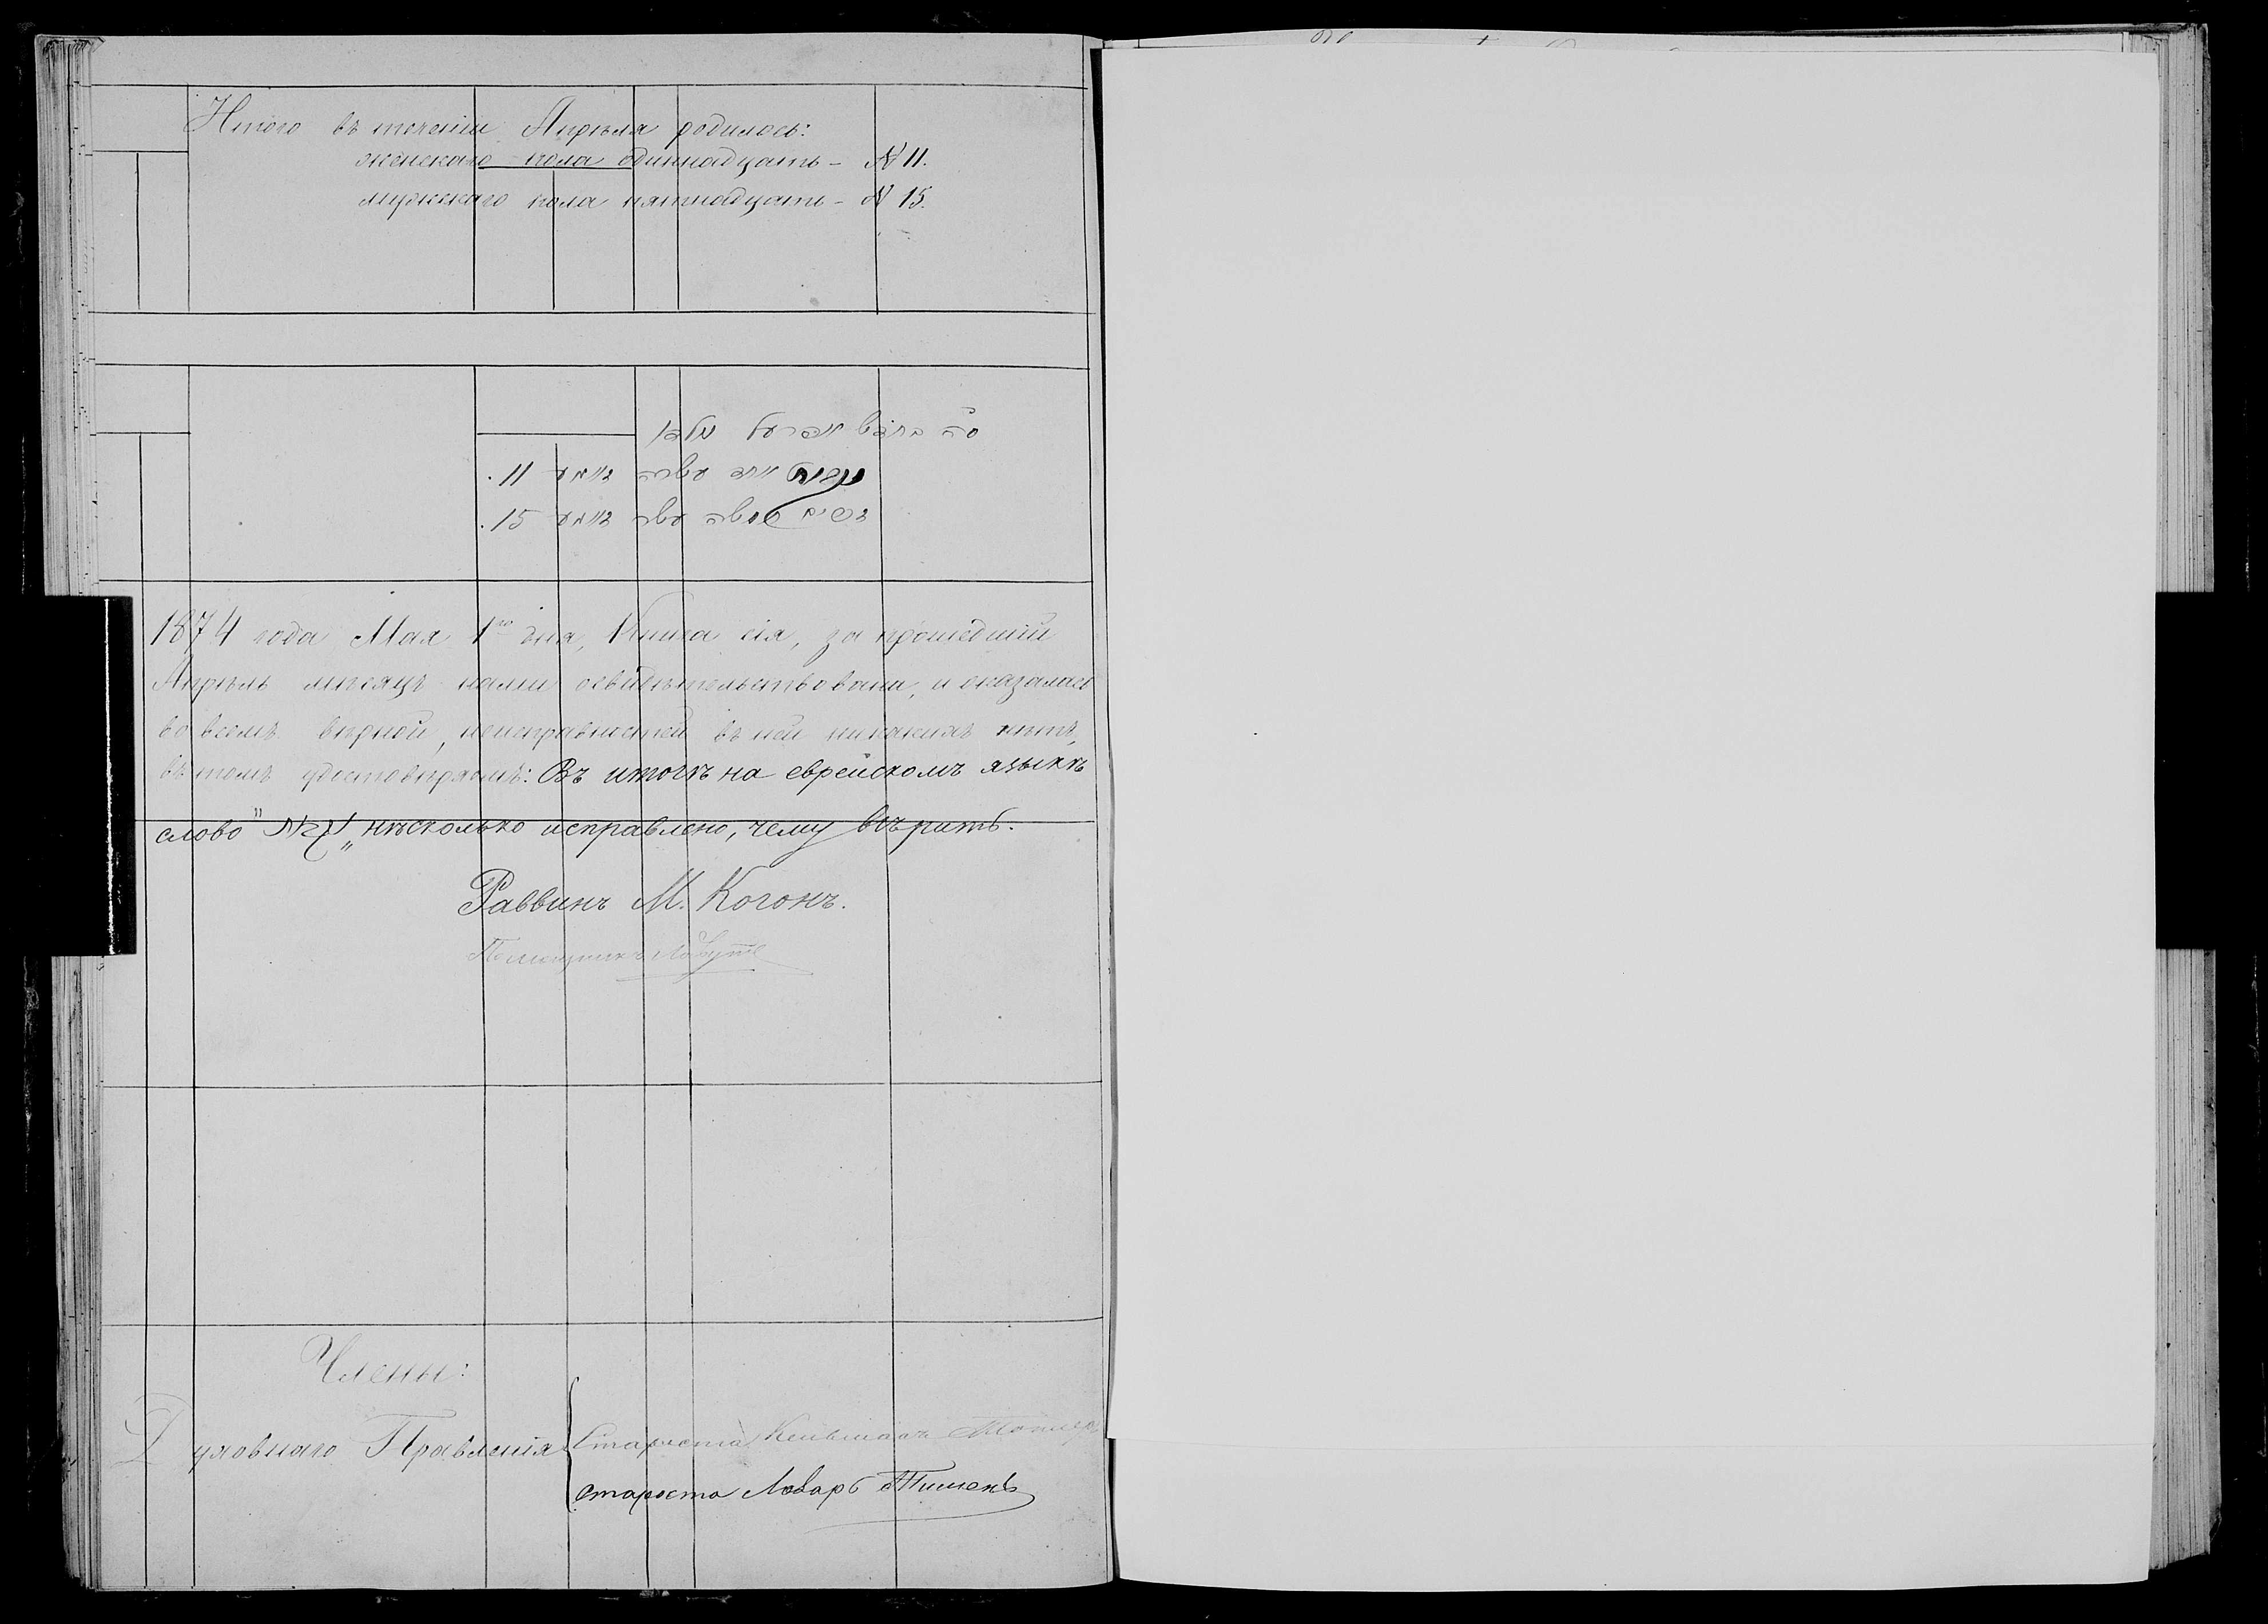 Итого въ теченіи Апрѣля родилось:
женскаго пола одиннадцать - № 11.
мужскаго пола пятнадцать - № 15.
סה בחדש אפריל נולדו
אחד עשרה נומע 11.
חמשה עשר נומע 15.
1874 года Мая 1го дня, Книга сія, за прошедшій
Апрѣль мѣсяцъ нами освидѣтельствована, и оказалась
во всемъ вѣрной, неисправностей въ ней никакихъ нѣтъ,
въ томъ удостовѣряемъ: Въ итогѣ на еврейскомъ языкѣ
слово " „ нѣсколько исправлено, чему вѣрить.
Раввинъ М. Когонъ.
Помощникъ
Члены:
Духовнаго Правленія
Староста
староста Лазарь